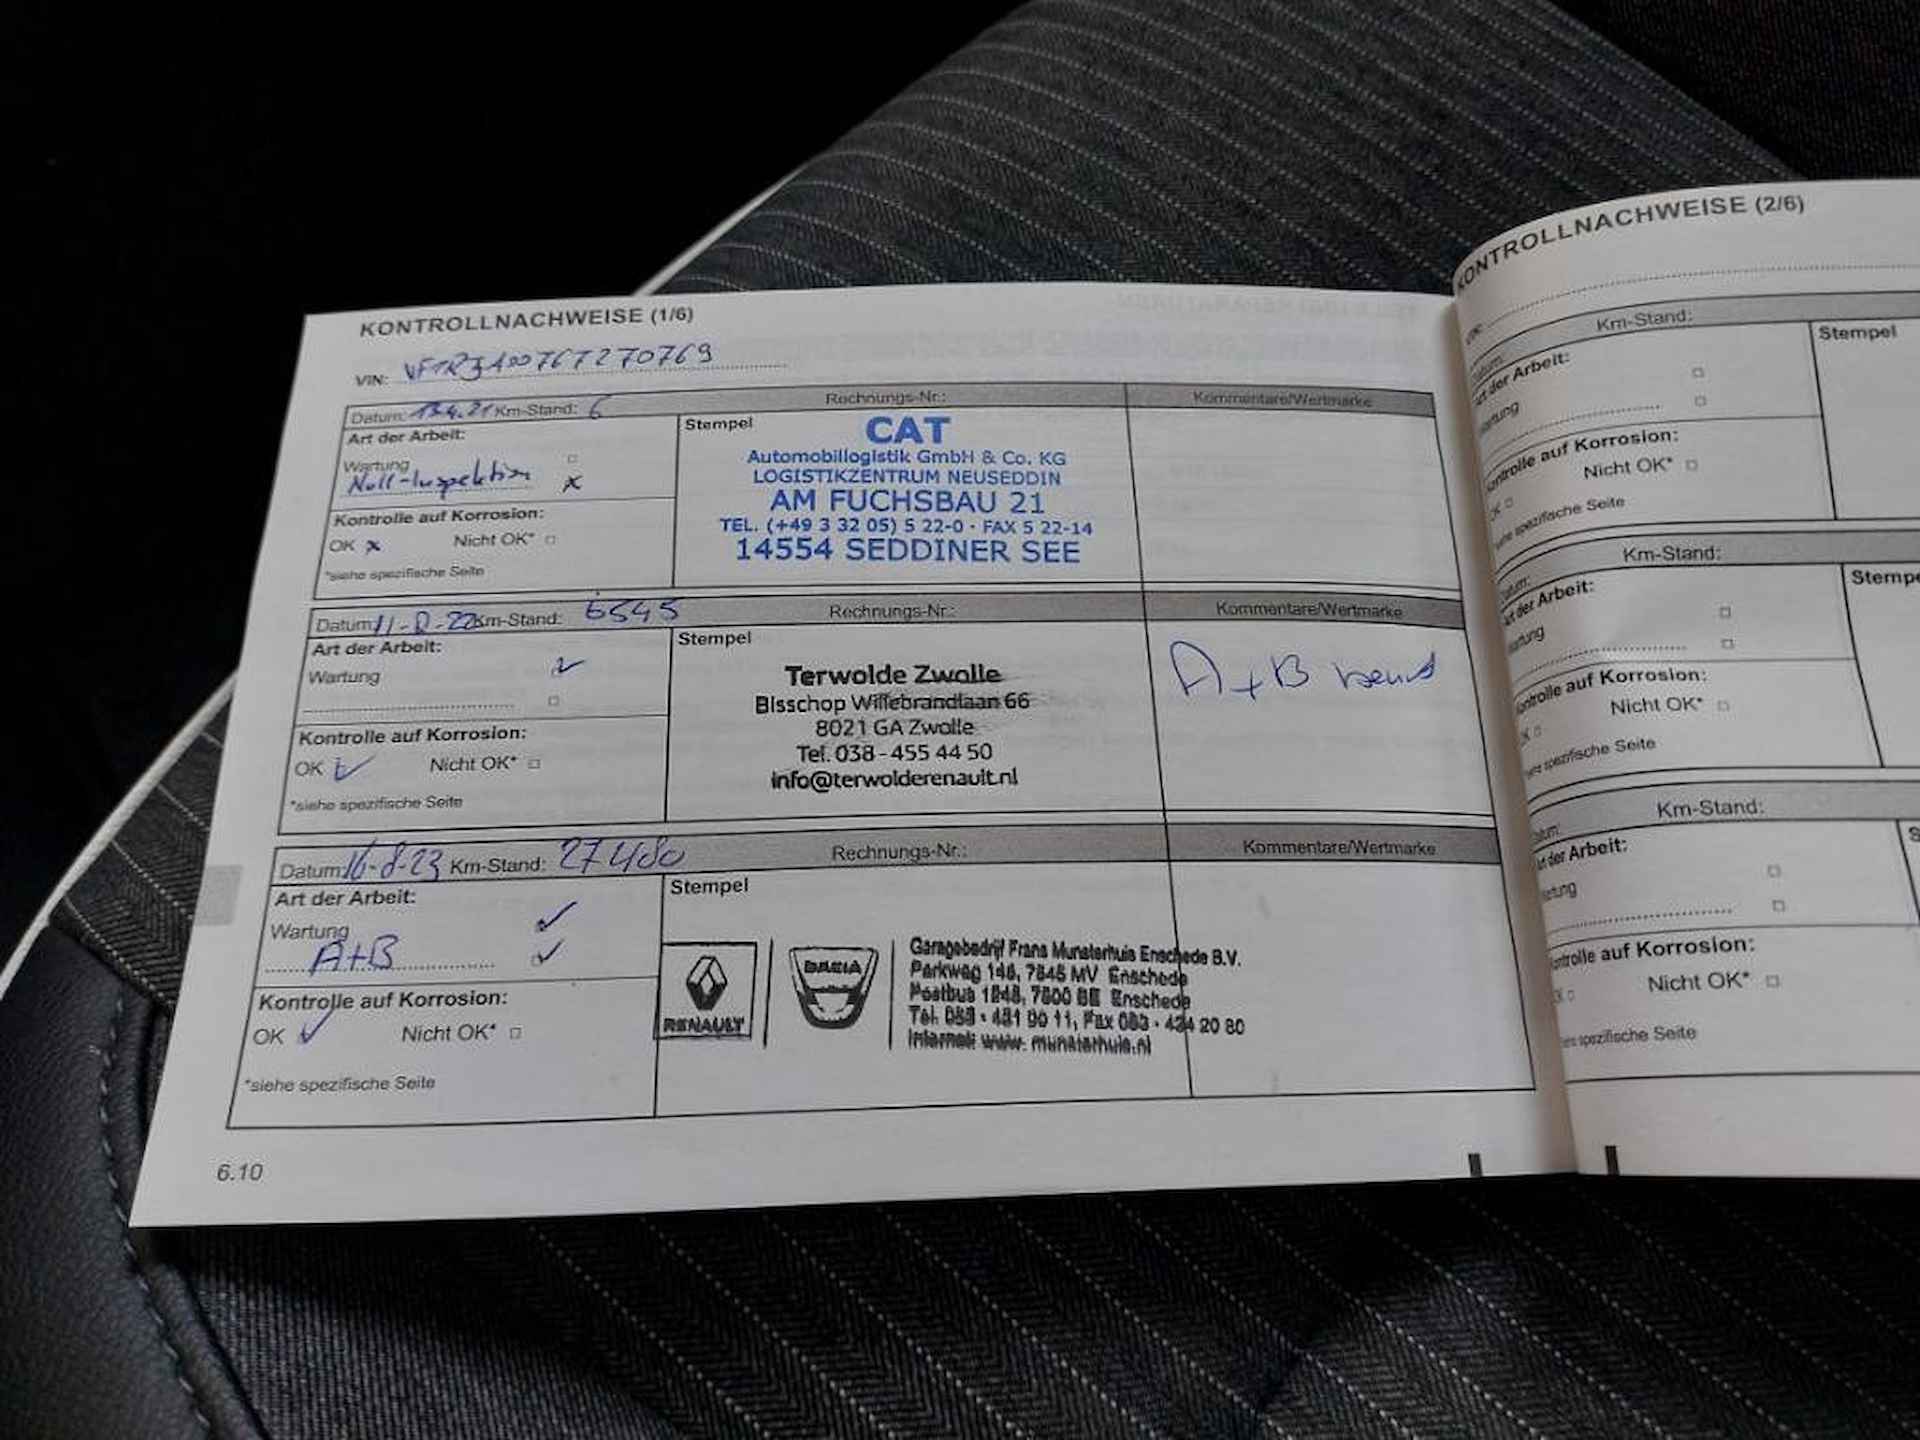 KONTROLLNACHWEISE (1/6)
VIN:
Datum: 13.4.21 Km-Stand: 6 Rechnungs-Nr.: Kommentare/Wertmarke
Art der Arbeit:
Wartung
Null-Inspektion x
Kontrolle auf Korrosion:
OK x Nicht OK*
*siehe spezifische Seite
Stempel
CAT
Automobillogistik GmbH & Co. KG
LOGISTIKZENTRUM NEUSEDDIN
AM FUCHSBAU 21
TEL. (+49 3 32 05) 5 22-0 · FAX 5 22-14
14554 SEDDINER SEE
Datum: 11-8-22 Km-Stand: 6545 Rechnungs-Nr.: Kommentare/Wertmarke
Art der Arbeit:
Wartung
Kontrolle auf Korrosion:
OK Nicht OK*
*siehe spezifische Seite
Stempel
Terwolde Zwolle
Bisschop Willebrandlaan 66
8021 GA Zwolle
Tel. 038 - 455 44 50
info@terwolderenault.nl
A+B beurt
Datum: 16-8-23 Km-Stand: 27480 Rechnungs-Nr.: Kommentare/Wertmarke
Art der Arbeit:
Wartung
A+B
Kontrolle auf Korrosion:
OK Nicht OK*
*siehe spezifische Seite
Stempel
RENAULT
DACIA
Garagebedrijf Frans Munsterhuis Enschede B.V.
Parkweg 146, 7545 MV Enschede
Postbus 1248, 7500 BE Enschede
Tel. 053 - 431 90 11, Fax 053 - 434 20 80
Internet: www. munsterhuis.nl
6.10
KONTROLLNACHWEISE (2/6)
Km-Stand:
Stempel
der Arbeit:
Kontrolle auf Korrosion:
Nicht OK*
spezifische Seite
Km-Stand:
der Arbeit:
Kontrolle auf Korrosion:
Nicht OK*
spezifische Seite
Km-Stand:
der Arbeit:
Kontrolle auf Korrosion:
Nicht OK*
spezifische Seite